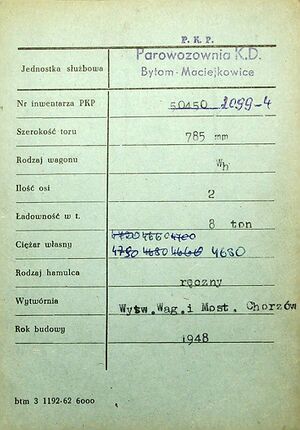 P. K. P.
Parowozownia K.D.
Jednostka służbowa
Bytom-Maciejkowice
Nr inwentarza PKP 50450 2099-4
Szerokość toru 785 mm
Rodzaj wagonu Wh
Ilość osi 2
Ładowność w t. 8 ton
4720 4660 4700
Ciężar własny 4750 4680 4660 4680
Rodzaj hamulca ręczny
Wytwórnia Wytw.Wag.i Most. Chorzów
Rok budowy 1948
btm 3 1192-62 6000